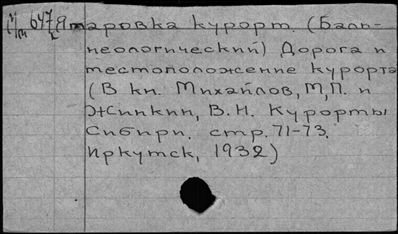 Ямаровка курорт. (Баль-
неологический) Дорога и
местоположение курорта
(В кн. Михайлов, М,П. и
Жинкин, В.Н. Курорты
Сибири. стр. 71-73.
Иркутск, 1932)